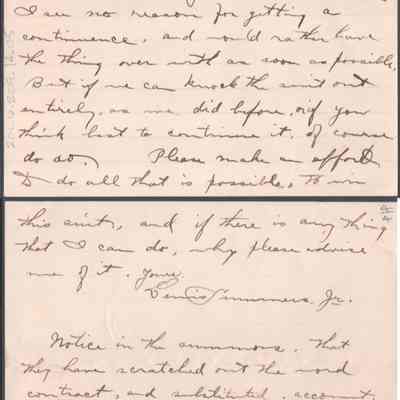 I see no reason for getting a
continuence, and would rather have
the thing over with as soon as possible.
But if we can knock the suit out
entirely, as we did before, or if you
think best to continue it, of course
do so. Please make an effort
to do all that is possible, to win
this suit, and if there is any thing
that I can do, why please advise
me of it. Yours.
Summers, Jr.
Notice in the summons. That
they have scratched out the word
contract, and substituted, account,